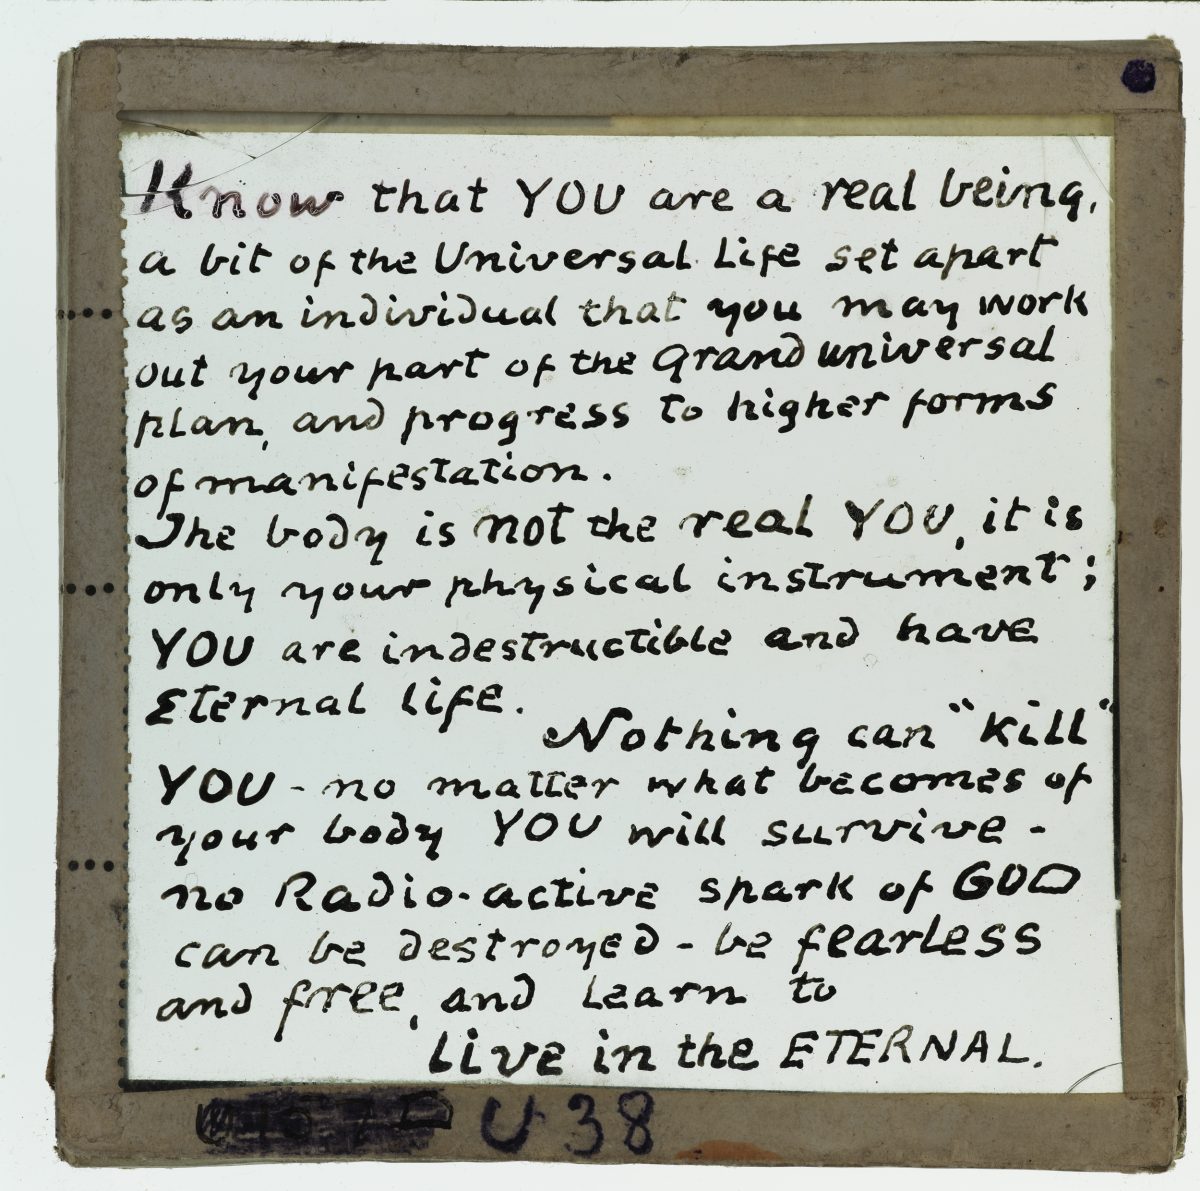 Know that YOU are a real being,
a bit of the Universal Life set apart
as an individual that you may work
out your part of the Grand universal
plan, and progress to higher forms
of manifestation.
The body is not the real YOU, it is
only your physical instrument;
YOU are indestructible and have
Eternal life.
Nothing can "kill"
YOU - no matter what becomes of
your body YOU will survive -
no Radio-active spark of GOD
can be destroyed - be fearless
and free, and learn to
live in the ETERNAL.
U 38